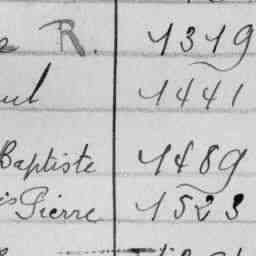 R. 1319
ul 1441
Baptiste 1489
is Pierre 1523